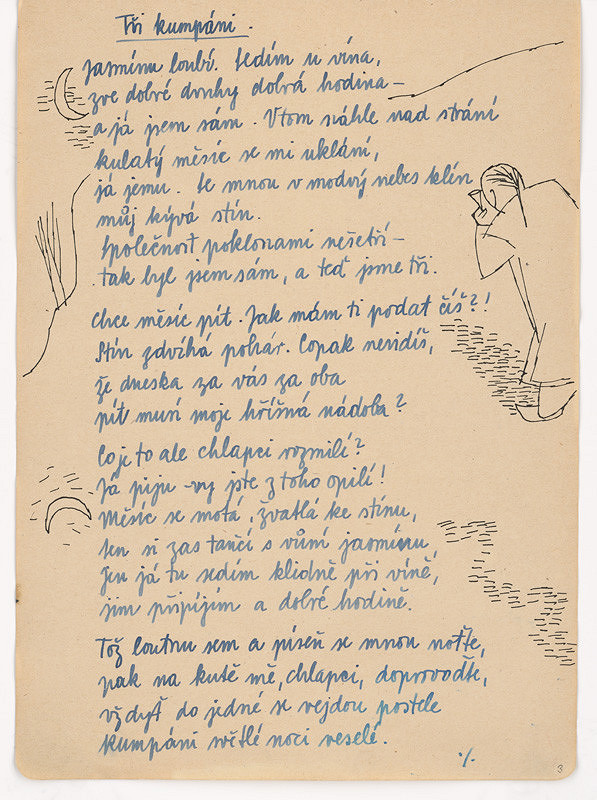 Tři kumpáni.
Jasmínu loubí. Sedím u vína,
zve dobré druhy dobrá hodina –
a já jsem sám. Vtom náhle nad strání
kulatý měsíc se mi uklání,
já jemu. Se mnou v modvý nebes klín
můj kývá stín.
Společnost poklonami nešetří –
tak byl jsem sám, a teď jsme tři.
Chce měsíc pít. Jak mám ti podat číš?!
Stín zdvíhá pohár. Copak nevidíš,
že dneska za vás za oba
pít musí moje hříšná nádoba?
Co je to ale chlapci rozmilí?
Já piju – vy jste z toho opilí!
Měsíc se motá, žvatlá ke stínu,
ten si zas tančí s vůní jasmínu,
jen já tu sedím klidně při víně,
jim připíjím a dobré hodině.
Tož loutnu sem a píseň se mnou notťe,
pak na kutě mě, chlapci, doprovoďte,
vždyť do jedné se vejdou postele
kumpáni světlé noci veselé.
./.
3